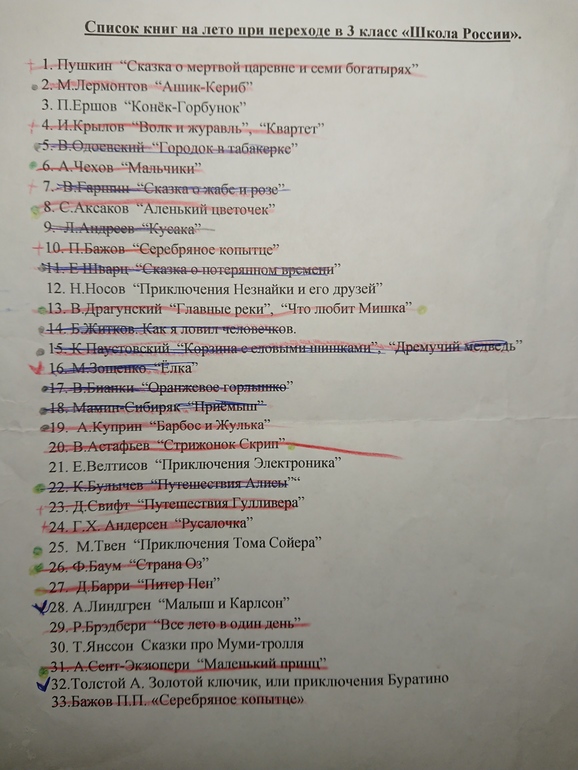 Список книг на лето при переходе в 3 класс «Школа России».
1. Пушкин “Сказка о мертвой царевне и семи богатырях”
2. М.Лермонтов “Ашик-Кериб”
3. П.Ершов “Конёк-Горбунок”
4. И.Крылов “Волк и журавль”, “Квартет”
5. В.Одоевский “Городок в табакерке”
6. А.Чехов “Мальчики”
7. В.Гаршин “Сказка о жабе и розе”
8. С.Аксаков “Аленький цветочек”
9. Л.Андреев “Кусака”
10. П.Бажов “Серебряное копытце”
11. Е.Шварц “Сказка о потерянном времени”
12. Н.Носов “Приключения Незнайки и его друзей”
13. В.Драгунский “Главные реки”, “Что любит Мишка”
14. Б.Житков. Как я ловил человечков.
15. К.Паустовский “Корзина с еловыми шишками”, “Дремучий медведь”
16. М.Зощенко “Ёлка”
17. В.Бианки “Оранжевое горлышко”
18. Мамин-Сибиряк “Приёмыш”
19. А.Куприн “Барбос и Жулька”
20. В.Астафьев “Стрижонок Скрип”
21. Е.Велтисов “Приключения Электроника”
22. К.Булычев “Путешествия Алисы”“
23. Д.Свифт “Путешествия Гулливера”
24. Г.Х. Андерсен “Русалочка”
25. М.Твен “Приключения Тома Сойера”
26. Ф.Баум “Страна Оз”
27. Д.Барри “Питер Пен”
28. А.Линдгрен “Малыш и Карлсон”
29. Р.Брэдбери “Все лето в один день”
30. Т.Янссон Сказки про Муми-тролля
31. А.Сент-Экзюпери “Маленький принц”
32.Толстой А. Золотой ключик, или приключения Буратино
33.Бажов П.П. «Серебряное копытце»